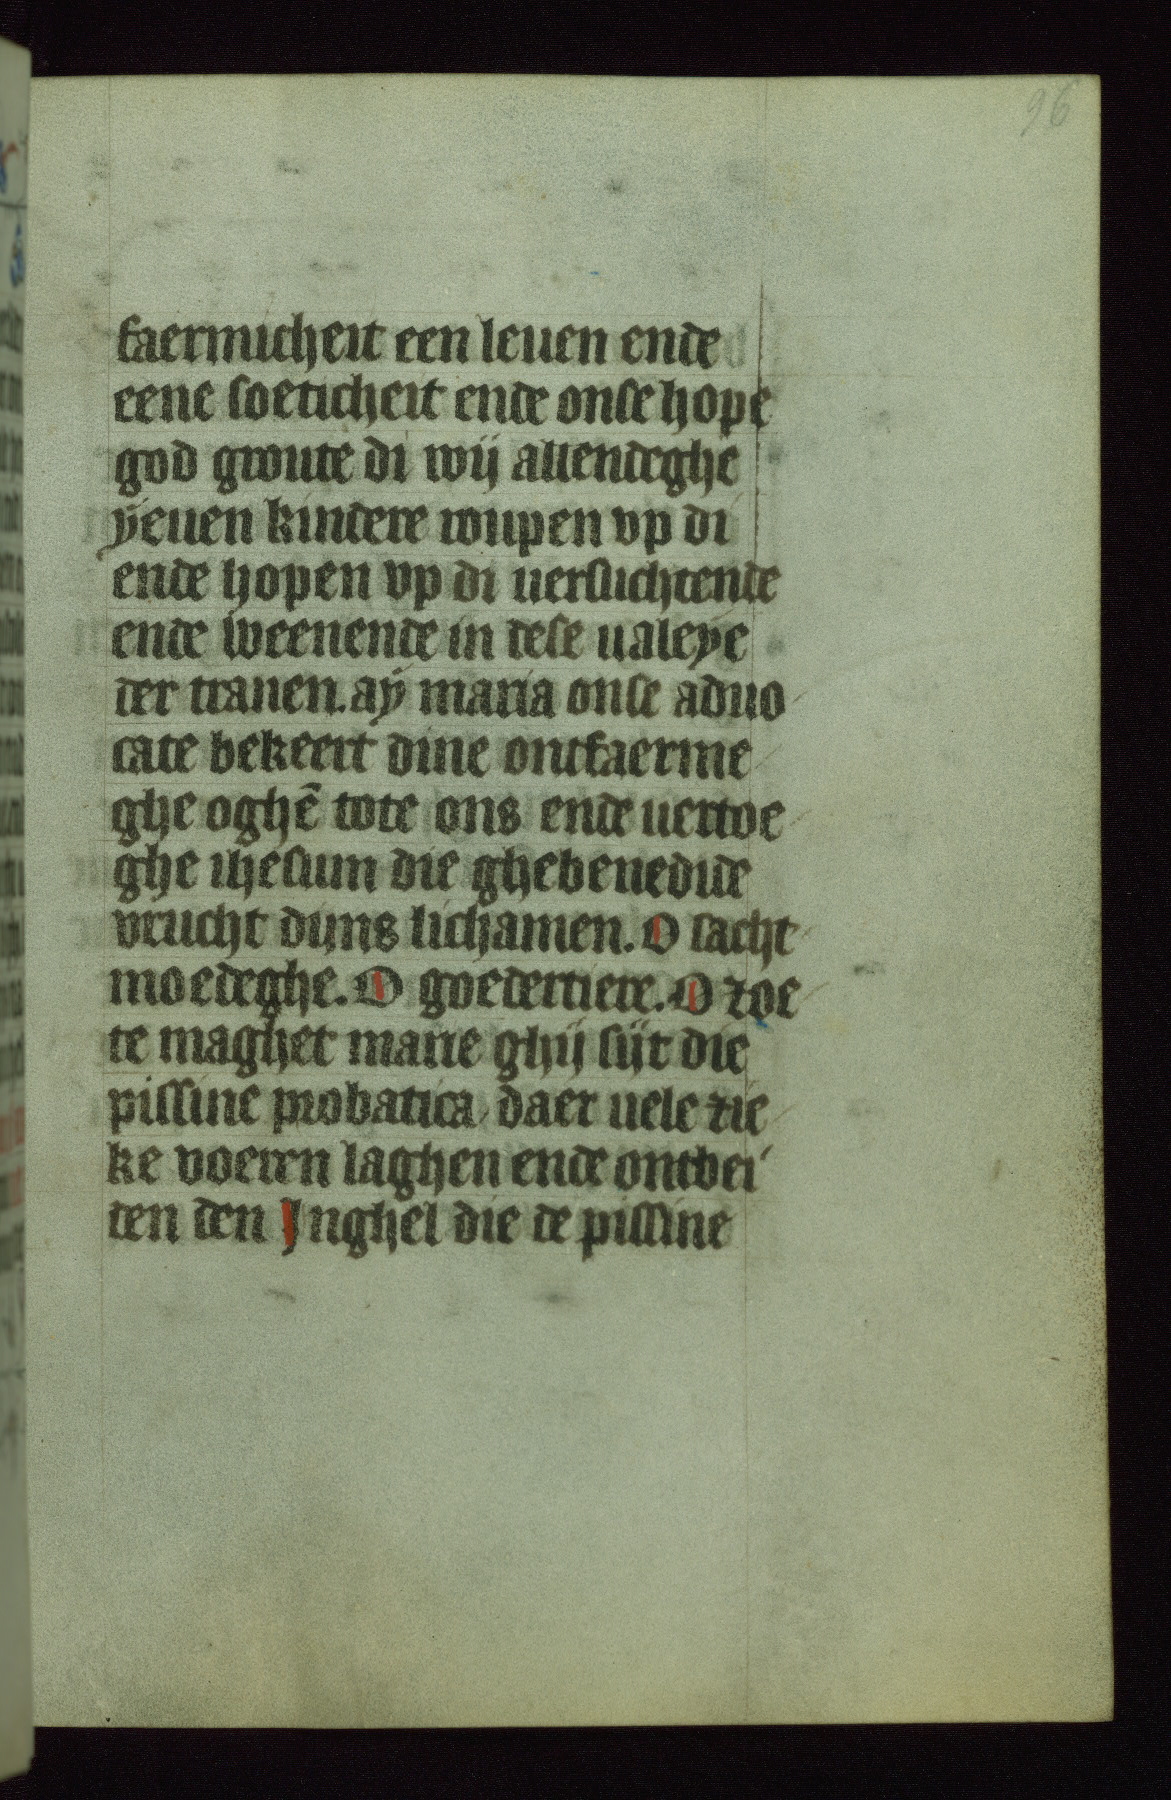 96
faermicheit een leuen ende
eene soeticheit ende onse hope
god groute di wij allendeghe
yeuen kindere roupen vp di
ende hopen vp di uersuchtende
ende weenende in dese ualeye
der tranen. ay maria onse aduo
cate bekeert dine ontfaerme
ghe oghē tote ons ende uertoe
ghe ihesum die ghebenedide
vrucht dijns lichamen. O sacht
moedeghe. O goedertiere. O zoe
te maghet marie ghij sijt die
pissine probatica daer uele zie
ke voeren laghen ende ontbei
den den Inghel die de pissine